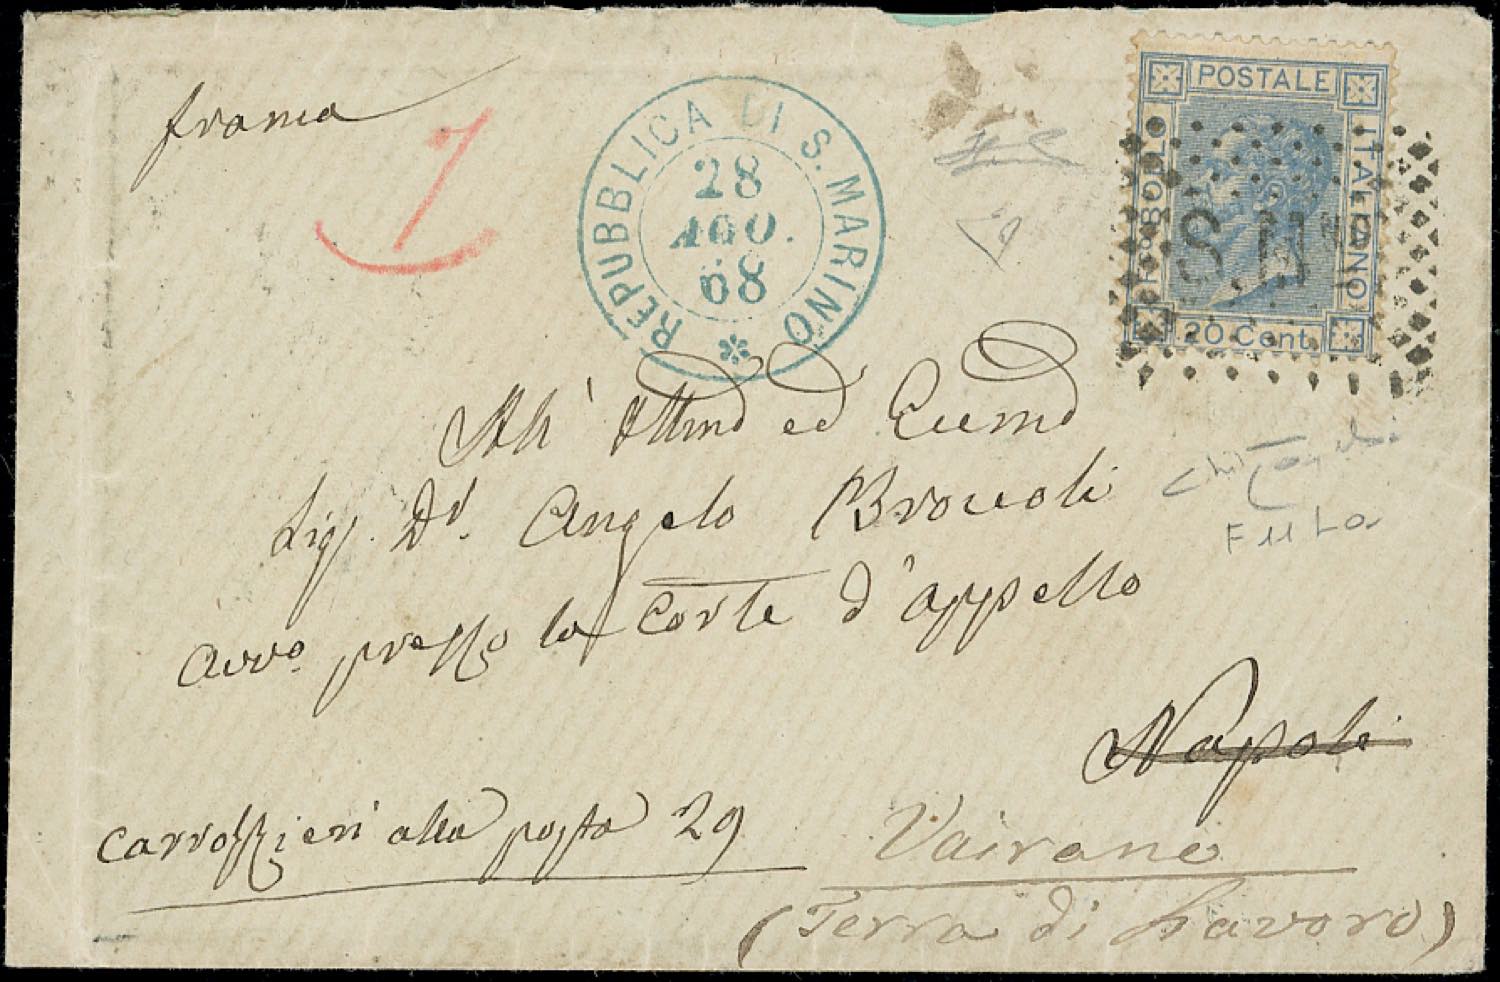 franca
1
REPUBBLICA DI S. MARINO
28
AGO.
68
FCO BOLLO POSTALE ITALIANO
20 Cent.
All' Ill.mo ed Ecc.mo
Sig. Dr. Angelo Broccoli
avv.o presso la Corte d'appello
Napoli
Carrozzieri alla posta 29
Vairano
(Terra di Lavoro)